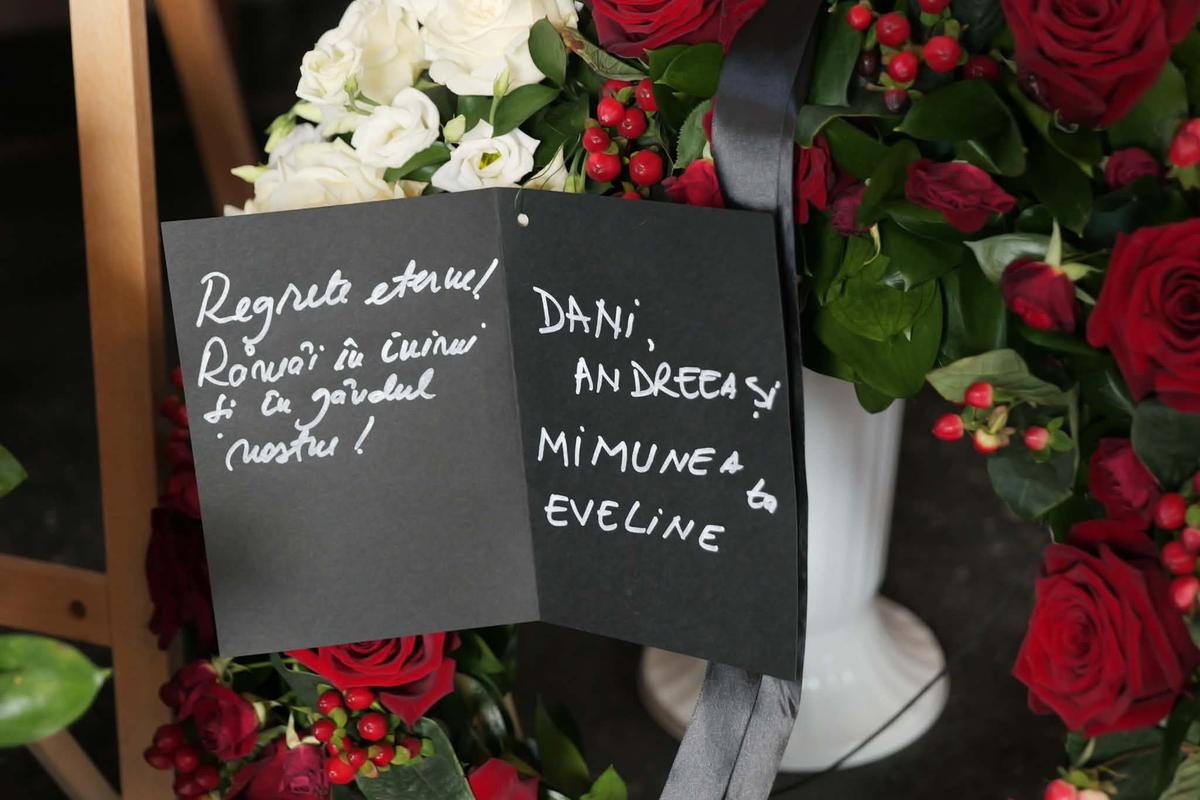 Regrete eterne!
Rămâi în inimi
și în gândul
nostru!
DANi,
ANDREEA și
MiMUNEA ta
EVELiNE